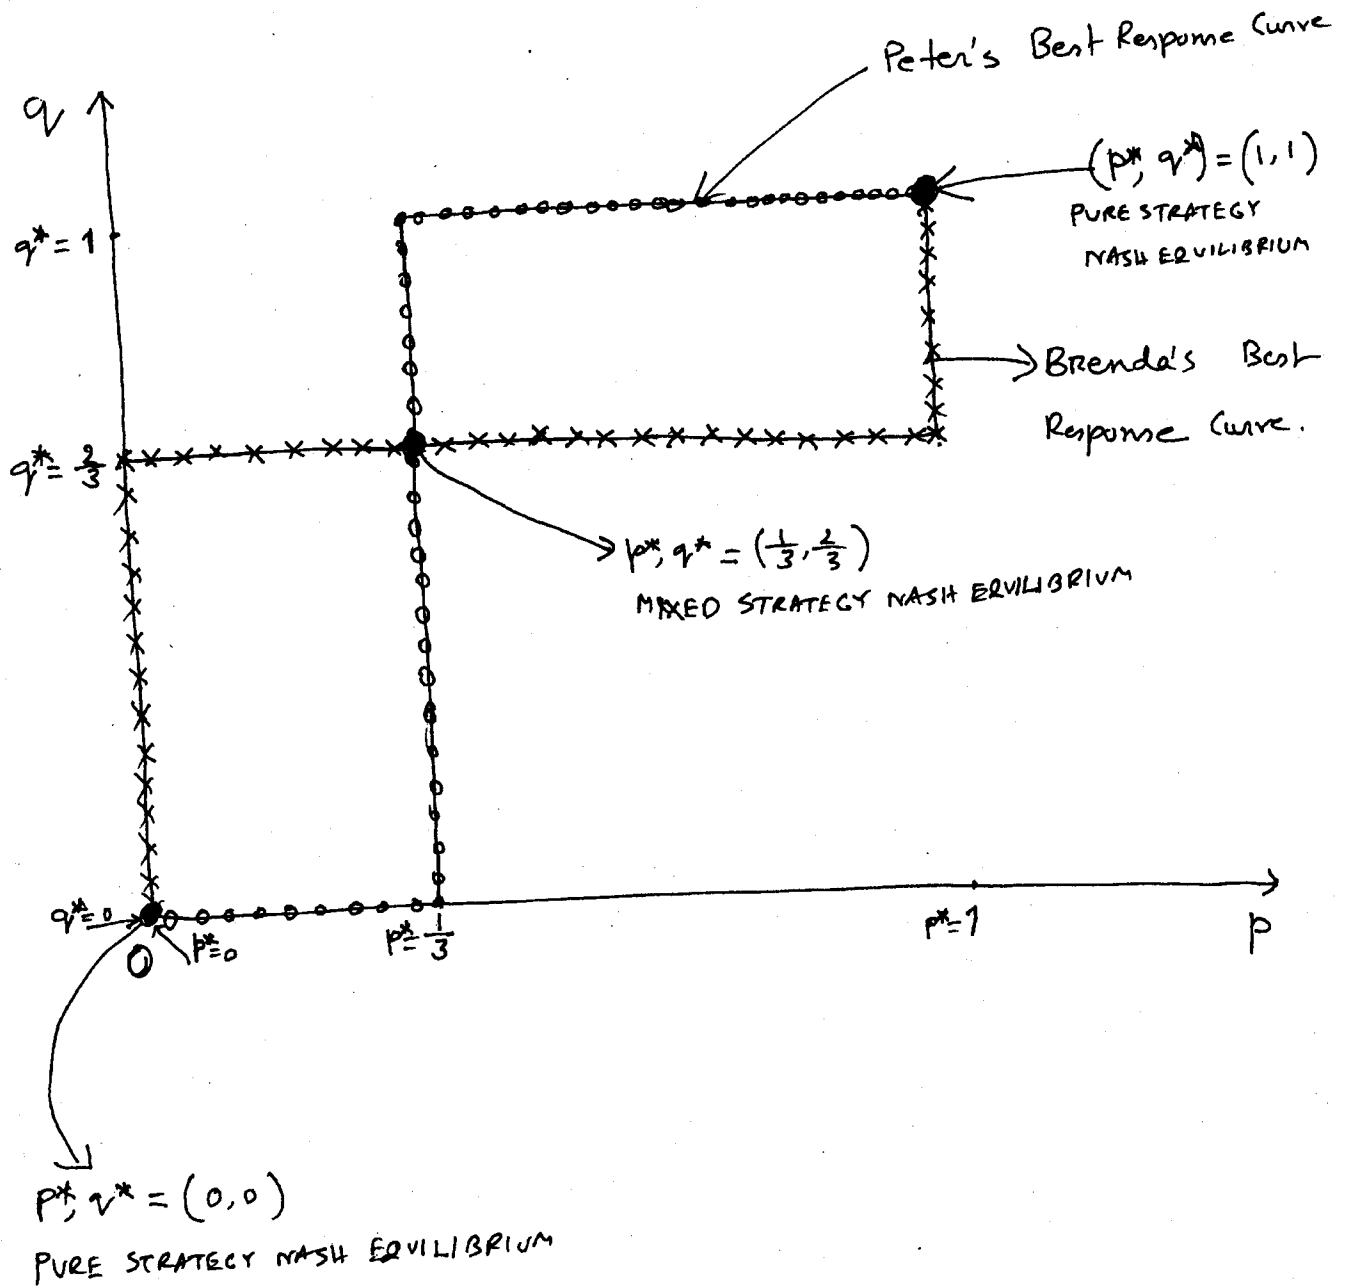 Peter's Best Response Curve
q
(p*, q*) = (1,1)
PURE STRATEGY
NASH EQUILIBRIUM
q* = 1
Brenda's Best
Response Curve.
q* = 2/3
p*, q* = (1/3, 2/3)
MIXED STRATEGY NASH EQUILIBRIUM
q*=0
p*=0
p*=1/3
p*=1
p
0
p*, q* = (0,0)
PURE STRATEGY NASH EQUILIBRIUM